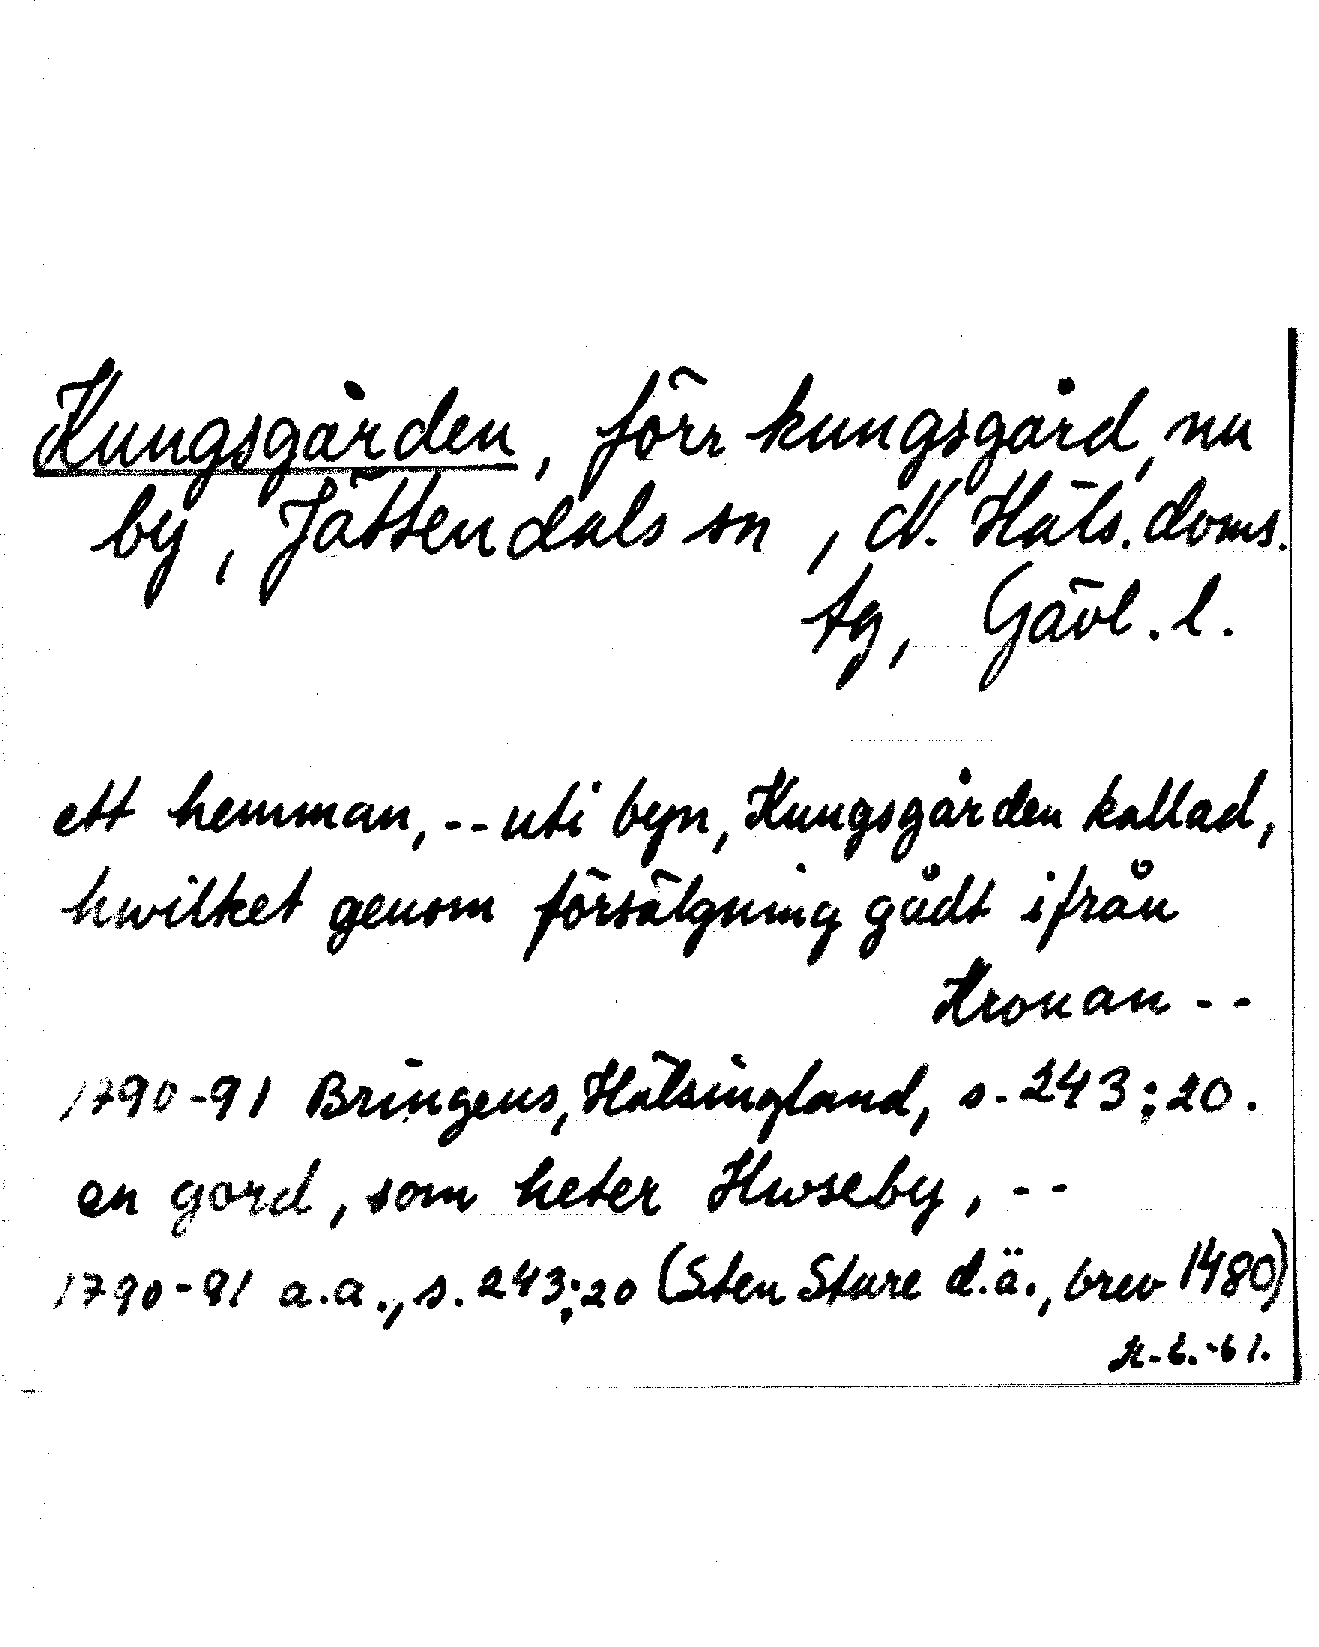 Kungsgården, förr kungsgård, nu
by, Jättendals sn, N. Häls. doms.
tg, Gävl. l.
ett hemman, -- uti byn, Kungsgården kallad,
hwilket genom försälgning gådt ifrån
Kronan --
1790-91 Bringéus, Hälsingland, s. 243:20.
en gord, som heter Hwseby, --
1790-91 a.a., s. 243:20 (Sten Sture d.ä., brev 1480)
-61.